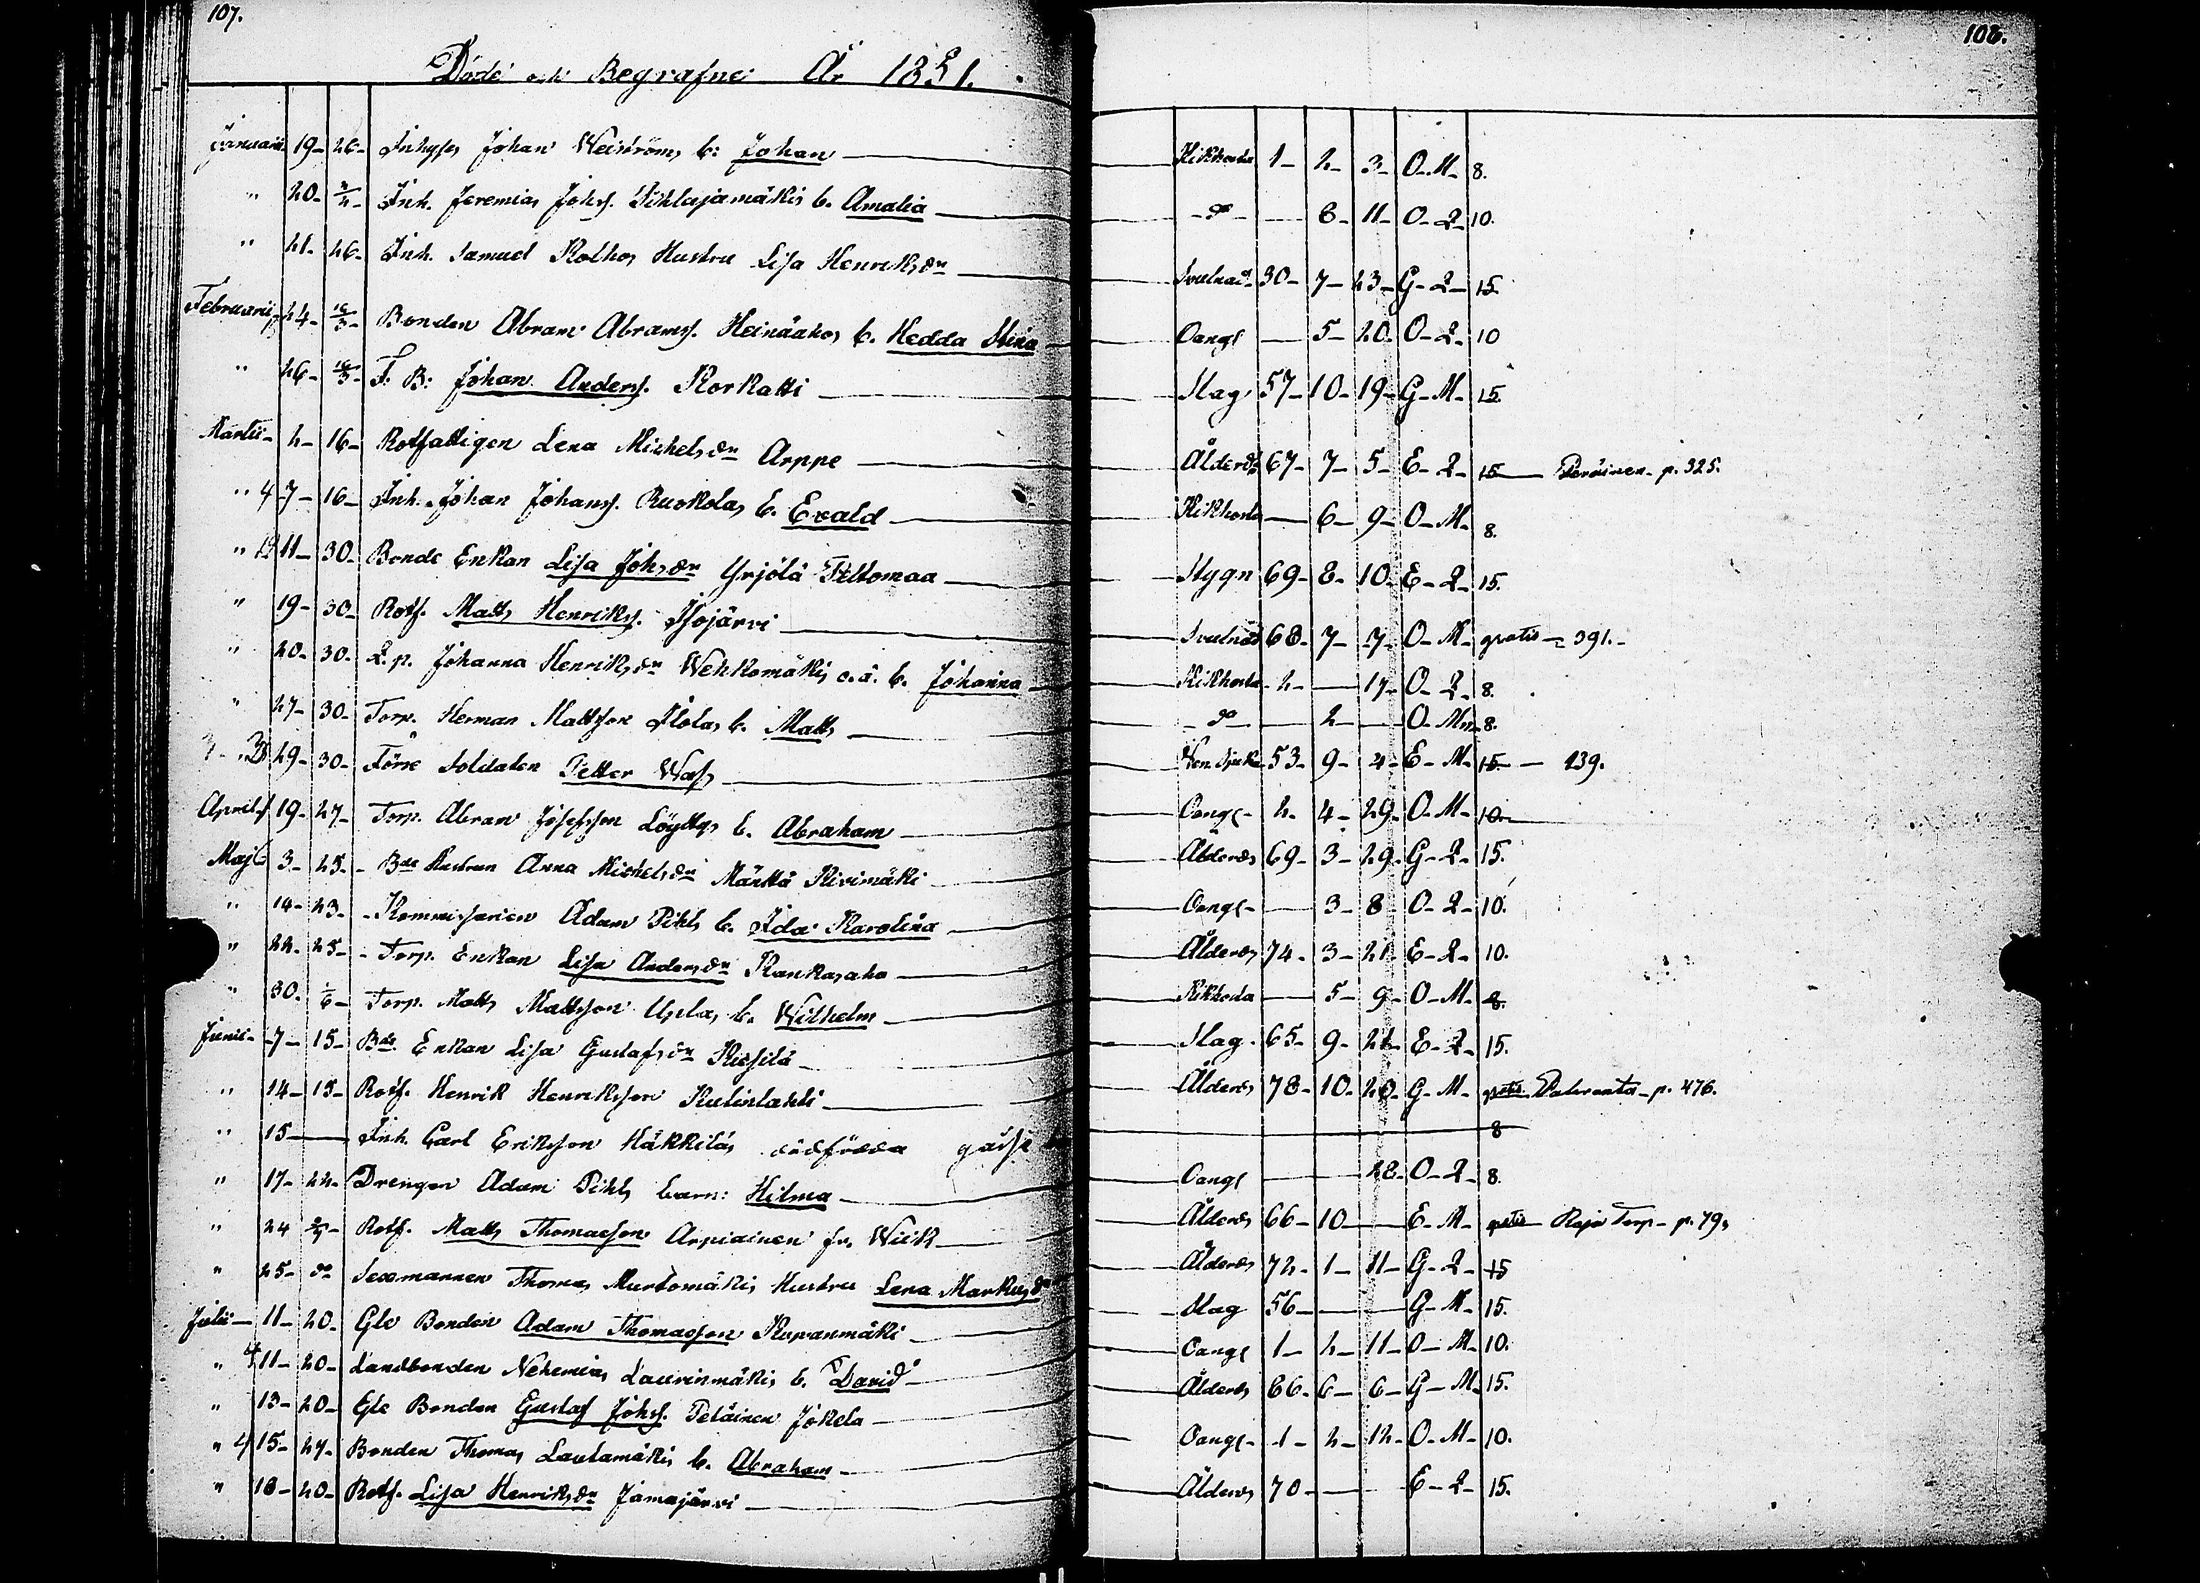 107.
108.
Döde och Begrafne År 1851.
Januarii 19 26 Inhyses Johan Weiströms b: Johan Kikhosta 1 2 3 O M 8.
" 20 2/2 Inh. Jeremias Johss. Sihlajamäkis b. Amalia do 8 11 O Q 10.
" 21 26 Inh. Samuel Kolhos Hustru Lisa Henriksdr Svulnad 30 7 23 G Q 15
Februarii 24 16/3 Bonden Abram Abramss. Heinäahos b. Hedda Stina Oangf 5 20 O Q 10
" 26 16/3 F. B: Johan Anderss. Korkatti Slag 57 10 19 G M 15
Martii 2 16 Rotfattigen Lena Michelsdr Arppe Ålderds 67 7 5 E Q 15 Peräinen p. 325.
" 4 7 16 Inh. Johan Johanss. Ruokolas b. Evald Kikhosta 6 9 O M 8.
" 12 11 30 Bonde Enkan Lisa Johsdr Yrjölä Peltomaa Stygn 69 8 10 E Q 15.
" 19 30 Rotf. Matts Henrikss. Isojärvi Svulnad 68 7 7 O M gratis 391.
" 20 30 Q. p. Johanna Henriksdr Wehkomäkis o. ä. b. Johanna Kikhosta 2 17 O Q 8.
" 27 30 Torp. Herman Mattsson Alolas b. Matts do 2 O M 8.
29 30 Förre Soldaten Petter Wass Ven. Sjukd 53 9 4 E M 15 139.
April 19 27 Torp. Abram Josefsson Löyttys b. Abraham Oangf 2 4 29 O M 10
Maji 3 25 Bde Hustrun Anna Michelsdr Mänttä Kivimäki Ålderds 69 3 29 G Q 15.
" 14 23 Kommissarien Adam Pihls b. Ida Karolina Oangf 3 8 O Q 10.
" 22 25 Torp. Enkan Lisa Andersdr Kankasaho Ålderds 74 3 21 E Q 10.
" 30 1/6 Torp. Matts Mattsson Uplas b. Wilhelm Kikhosta 5 9 O M 8.
Junii 7 15 Bde Enkan Lisa Gustafsdr Kessilä Slag 65 9 21 E Q 15.
" 14 15 Rotf. Henrik Henriksson Kulinlahti Ålderds 78 10 20 G M gratis Palvanta p. 476.
" 15 Inh. Carl Eriksson Häkkiläs dödfödda gåsse 8
" 17 22 Drengen Adam Pihls barn: Hilma Oangf 28 O Q 8.
" 24 Rotf. Matts Thomasson Arpiainen fr. Wiik Ålderds 66 10 E M gratis Raja Torp p. 79.
" 25 do Sexmannen Thomas Murtomäkis Hustru Lena Markusdr Ålderds 72 1 11 G Q 15
Julii 11 20 Gle Bonden Adam Thomasson Kupanmäki Slag 56 G M 15.
" 4 11 20 Landbonden Nehemias Laurinmäkis b. David Oangf 1 2 11 O M 10.
" 13 20 Gle Bonden Gustaf Johss. Peläinen Jokela Ålderds 66 6 6 G M 15.
" 4 15 27 Bonden Thomas Lautamäkis b. Abraham Oangf 1 2 12 O M 10.
" 18 20 Rotf. Lisa Henriksdr Jämäjärvi Ålderds 70 E Q 15.